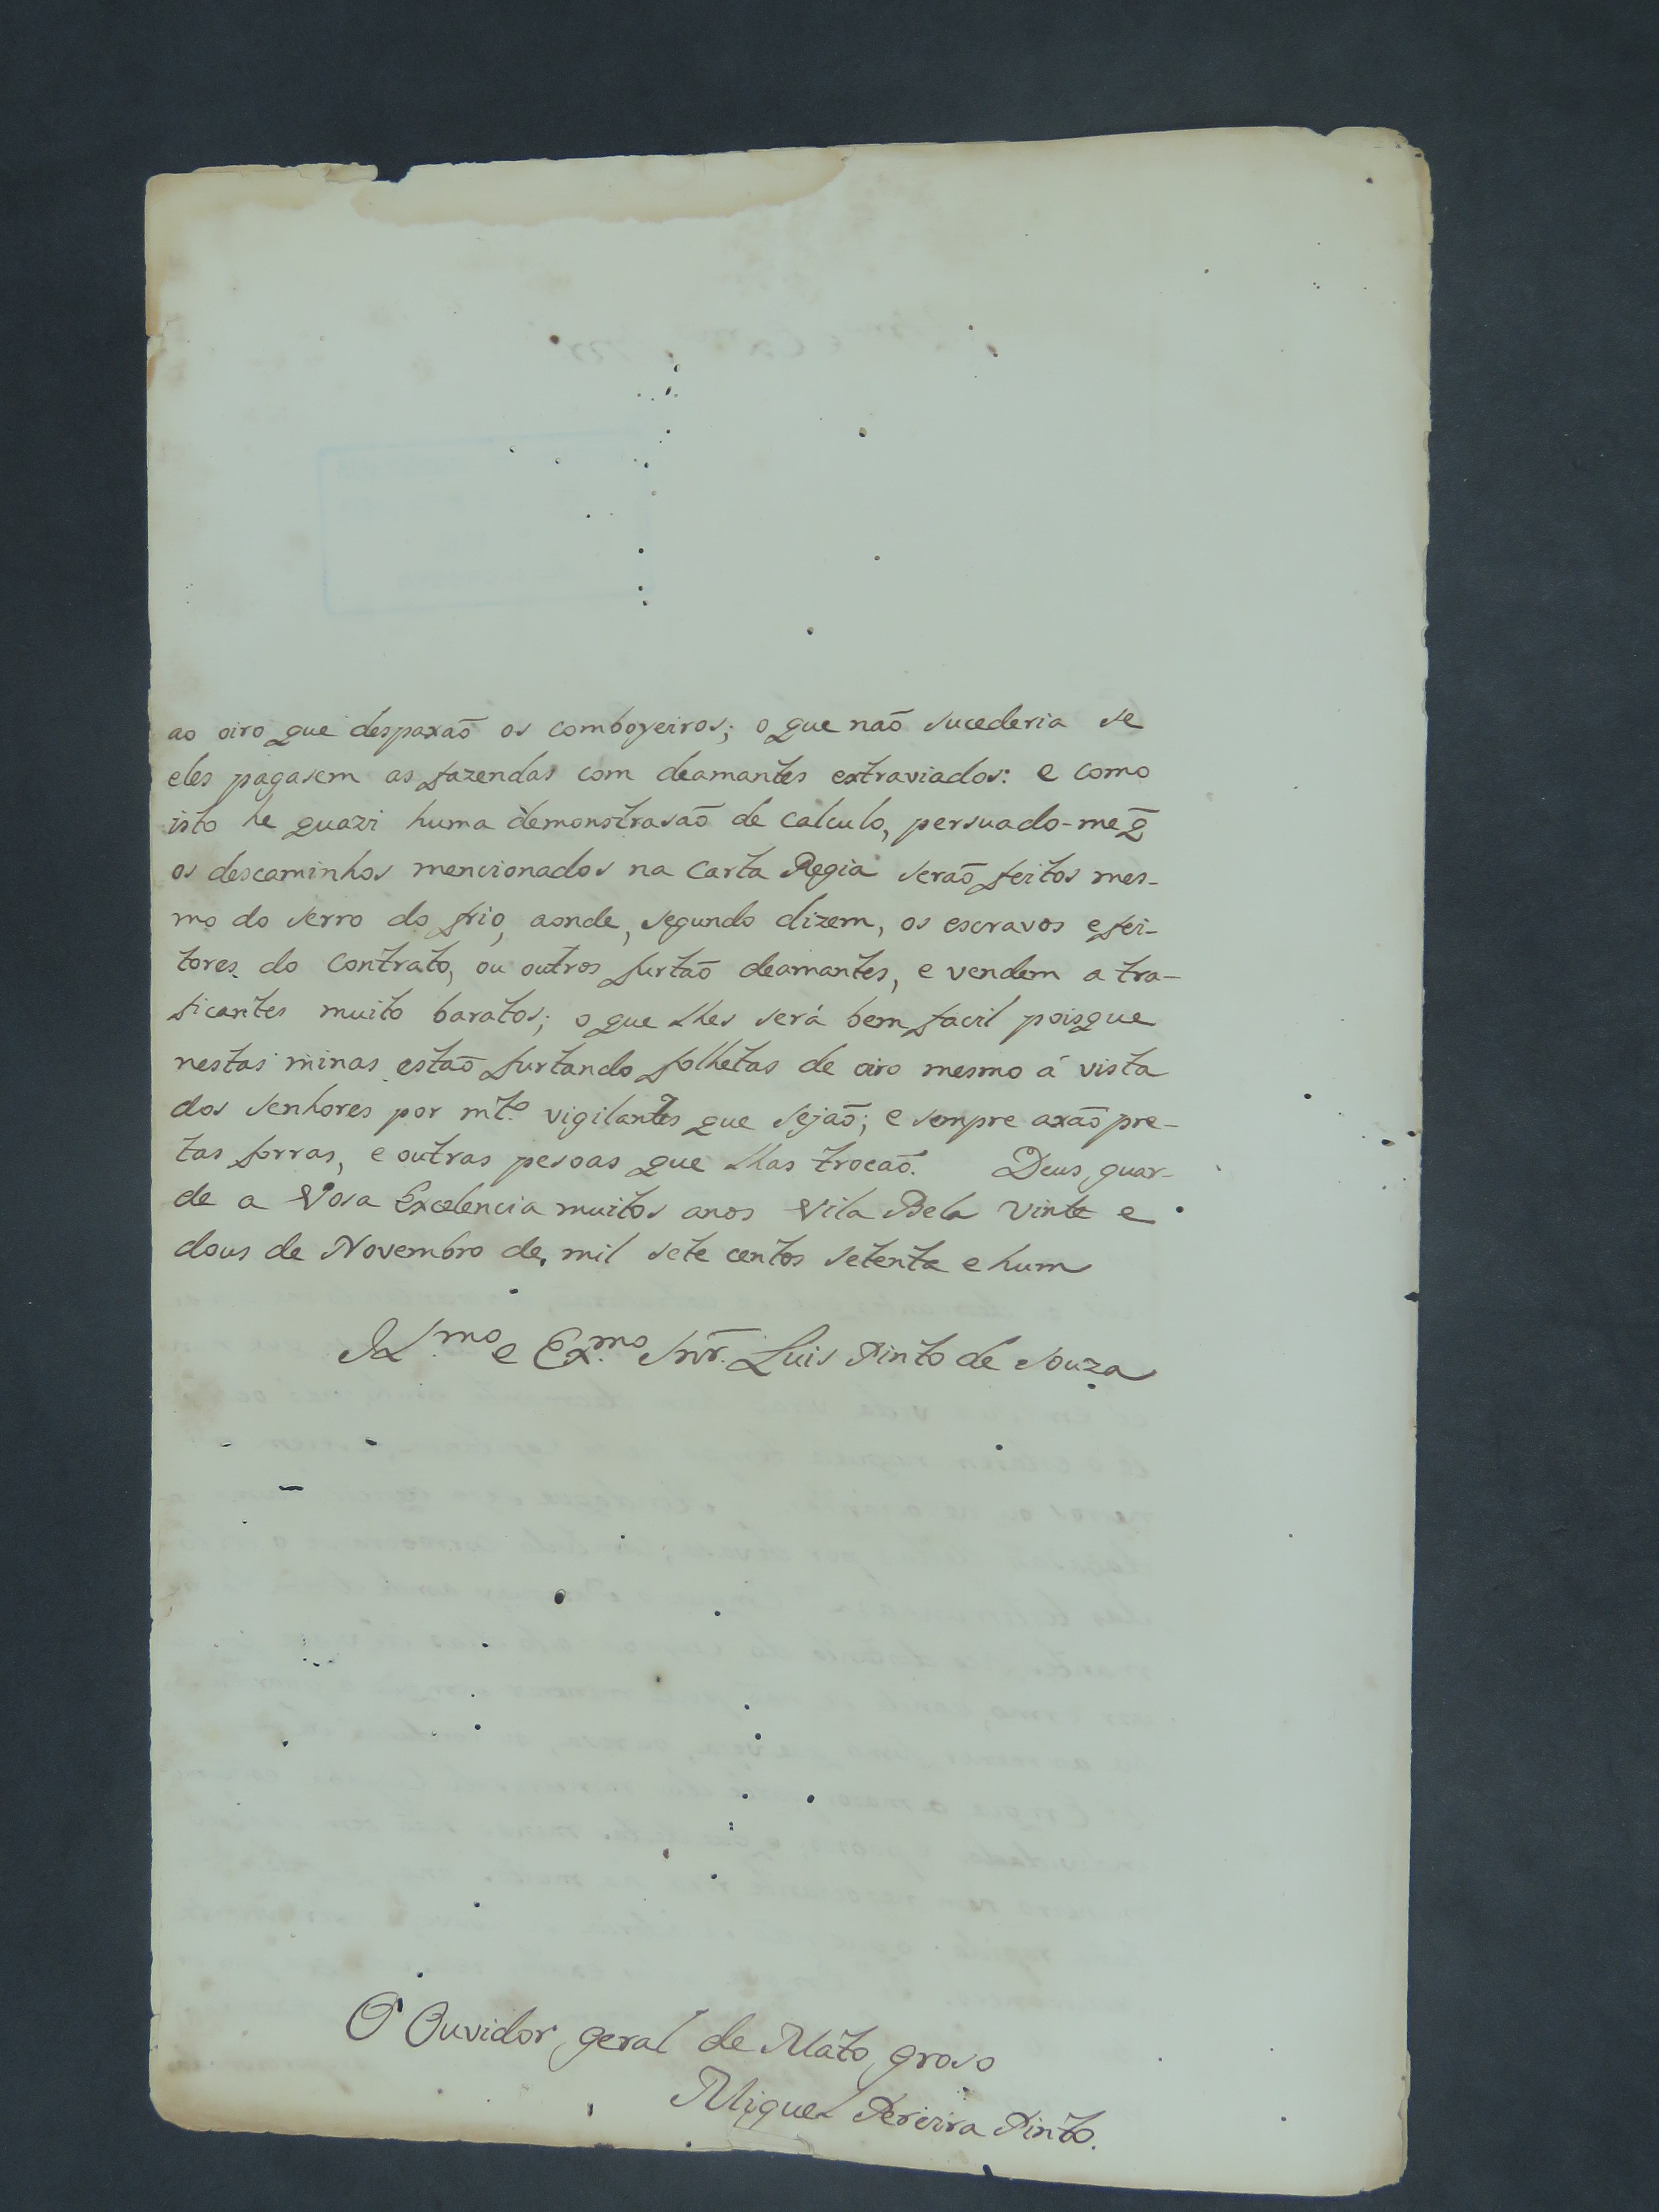 ao oiro que despaxaõ os comboyeiros; o que naõ sucederia se
eles pagasem as fazendas com deamantes extraviados: e como
isto he quazi huma demonstrasaõ de calculo, persuado-me q̃
os descaminhos mencionados na Carta Regia seraõ feitos mes-
mo do serro do frio, aonde, segundo dizem, os escravos e fei-
tores do Contrato, ou outros furtaõ deamantes, e vendem a tra-
ficantes muito baratos; o que lhes será bem facil poisque
nestas minas estaõ furtando folhetas de oiro mesmo á vista
dos senhores por mt.º vigilantes que sejaõ; e sempre axaõ pre-
tas forras, e outras pesoas que lhas trocaõ. Deus guar-
de a Vosa Excelencia muitos anos Vila Bela vinte e
dous de Novembro de mil sete centos setenta e hum
Il.mo e Ex.mo Snr. Luis Pinto de Souza
O Ouvidor geral de Mato groso
Miguel Pereira Pinto.